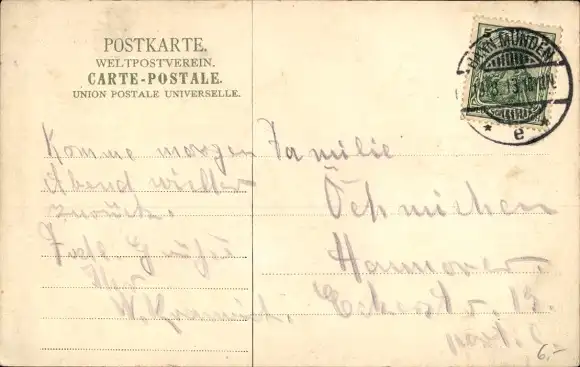 POSTKARTE.
WELTPOSTVEREIN.
CARTE-POSTALE.
UNION POSTALE UNIVERSELLE.
HANN. MÜNDEN
* e
5
Komme morgen
Abend wieder
zurück.
Ihr
W.
Familie
Öchmichen
Hannover.
Eckerstr. 13.
part.
6,-